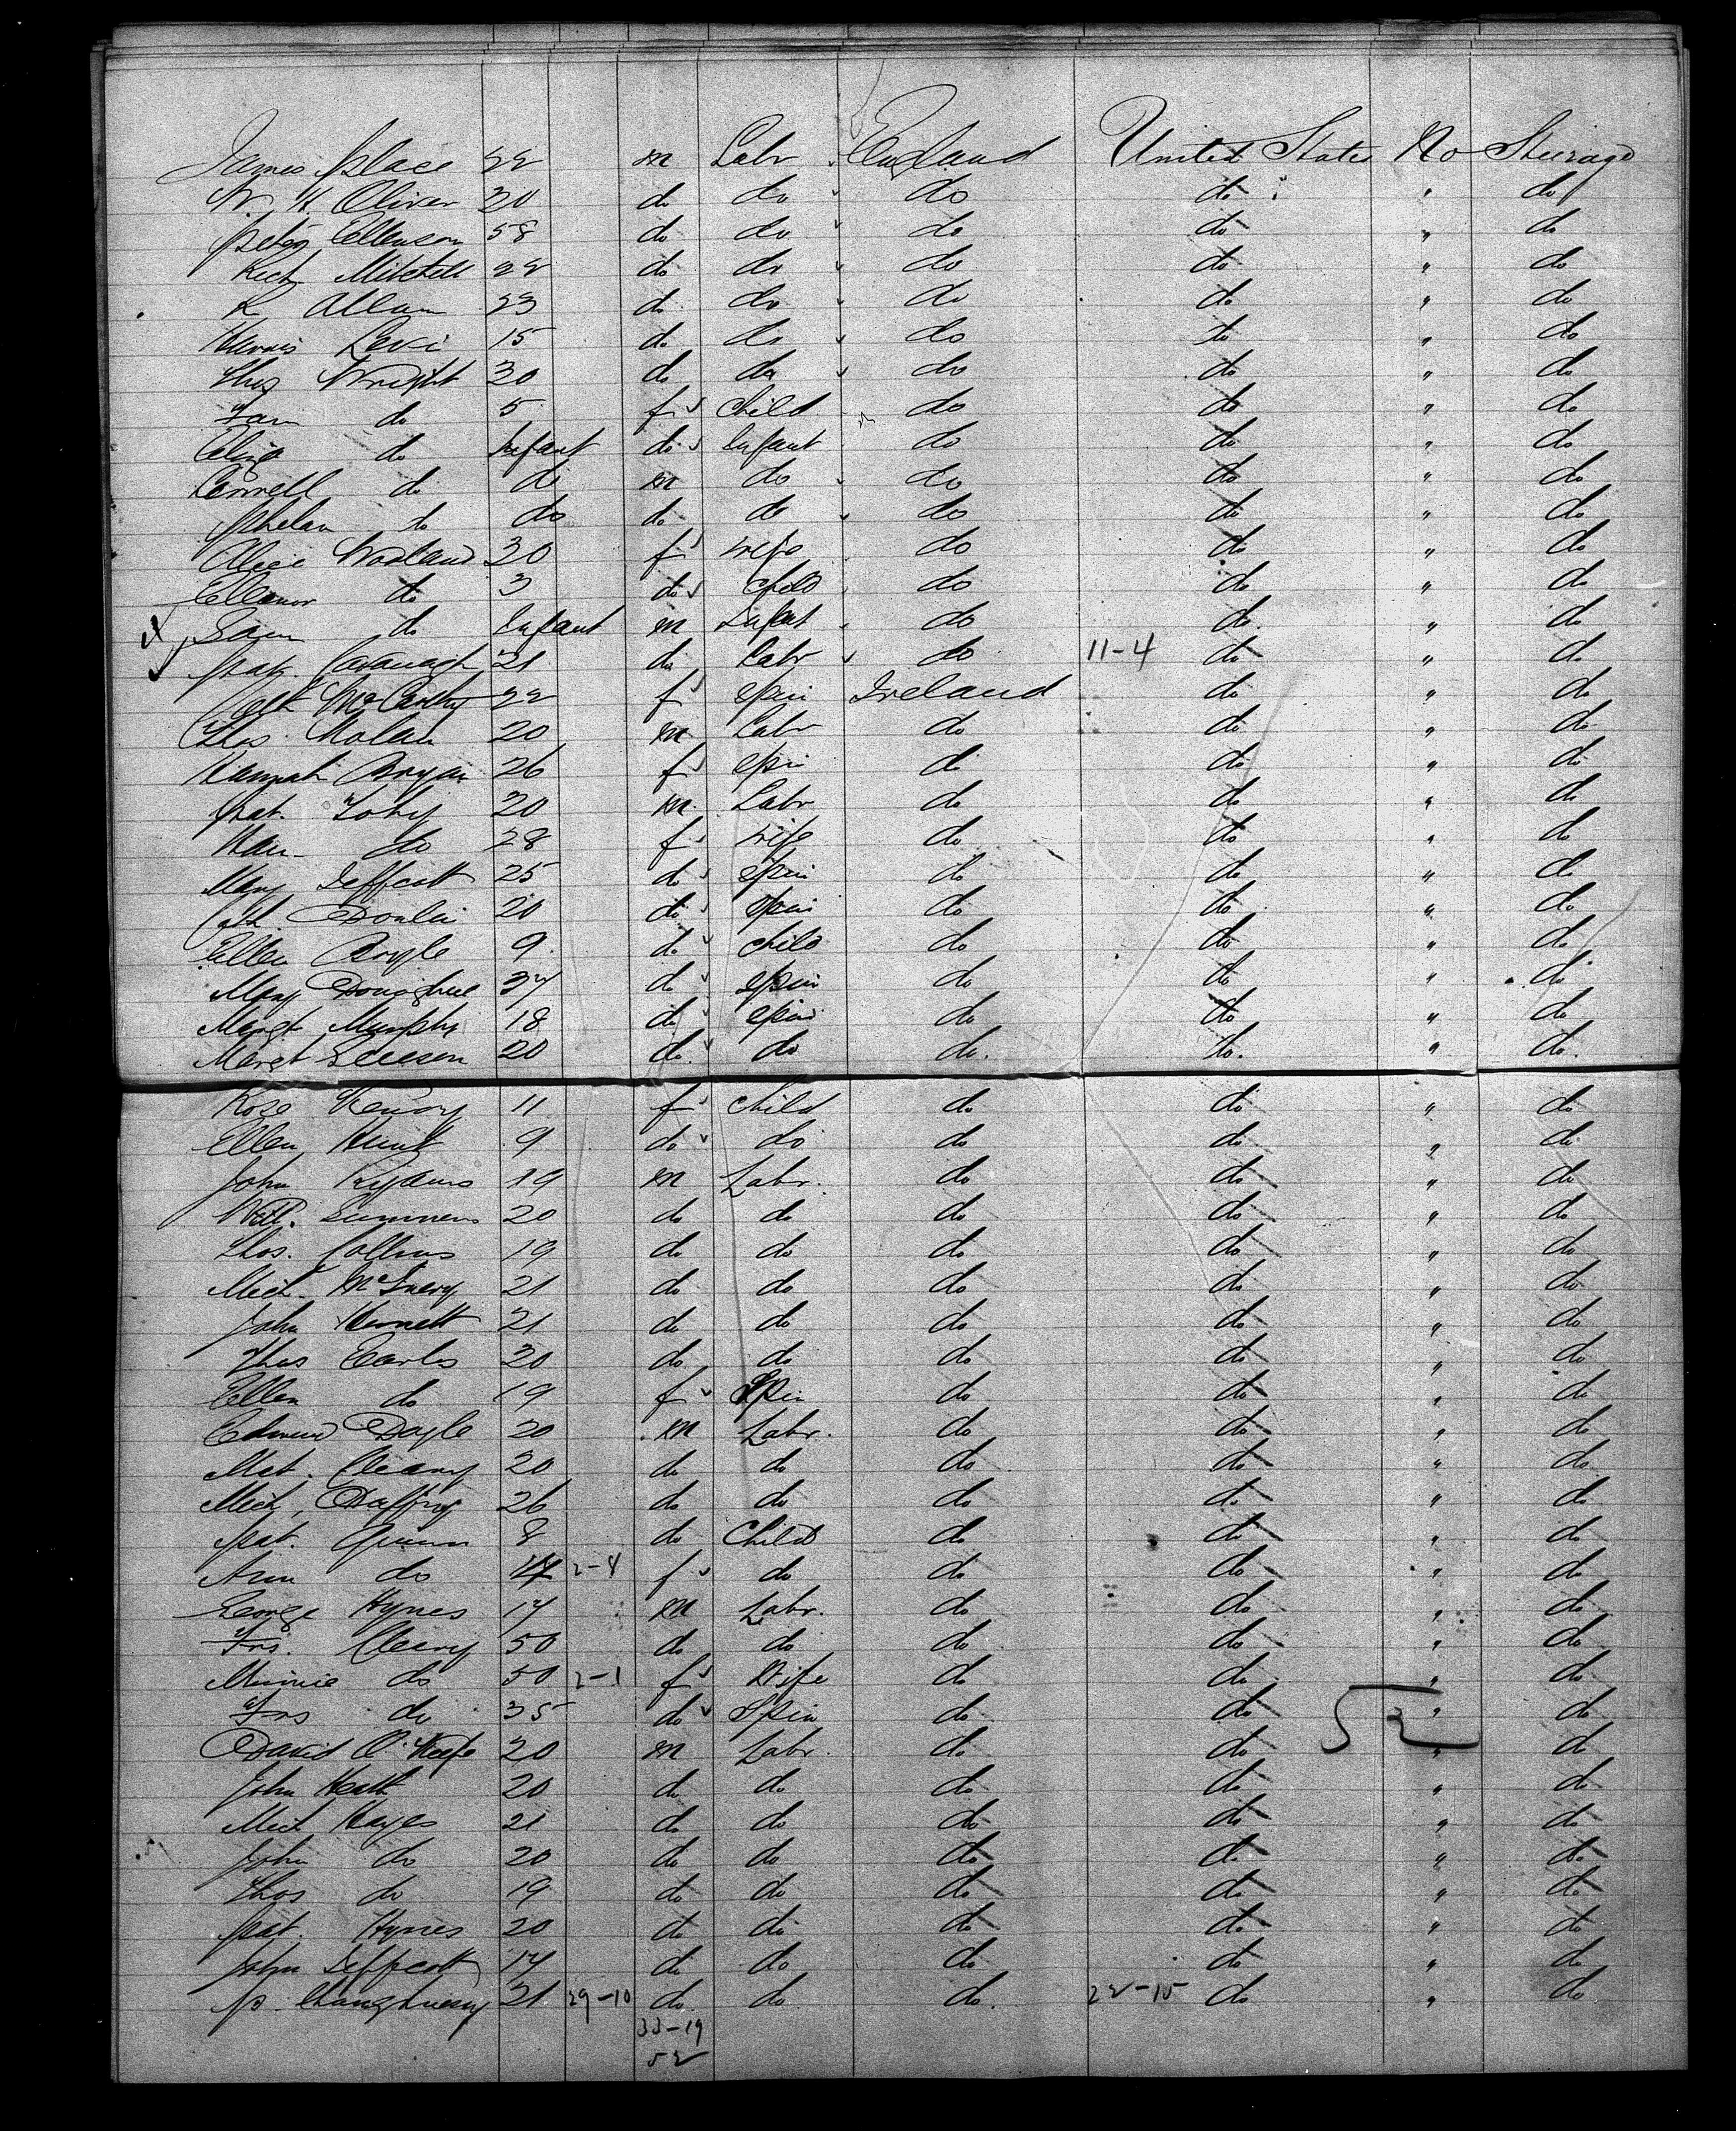 James Place 22 m Labr England United States No Steerage
W. H. Oliver 20 do do do do " do
Peter Ellenson 58 do do do do " do
Rich Mitchell 22 do do do do " do
R Allam 23 do do do do " do
Harris Levi 15 do do do do " do
Thos Wright 30 do do do do " do
do 5 f child do do " do
do Infant do Infant do do " do
Connell do do m do do do " do
Phelan do do do do do do " do
Alice Woodland 30 f wife do do " do
Ellenor do 3 do child do do " do
Sam do Infant m Infant do do " do
Pat. Cavanagh 21 do Labr do 11-4 do " do
Cath McCarthy 22 f spin Ireland do " do
Thos. Molan 20 m Labr do do " do
Hannah Bryan 26 f spin do do " do
Pat. 20 m Labr do do " do
Han do 28 f wife do do " do
Mary Jeffcott 25 do spin do do " do
Cath. Donlin 20 do spin do do " do
Ellen Boyle 9 do child do do " do
Mary Donoghue 37 do spin do do " do
Margt Murphy 18 do spin do do " do
Margt Leeson 20 do do do. do. " do.
Rose Henory 11 f child do do " do
Ellen Hunt 9 do do do do " do
John 19 m Labr. do do " do
Summers 20 do do do do " do
Thos. Collins 19 do do do do " do
Mich. McInery 21 do do do do " do
John Hennett 21 do do do do " do
Thos Earles 20 do do do do " do
Ellen do 19 f Spin do do " do
Edmund Doyle 20 m Labr. do do " do
Mat. Cleary 20 do do do do " do
Mich. Daffny 26 do do do do " do
Pat. Quinn 8 do Child do do " do
Ann do 2-4 f do do do " do
George Hynes 17 m Labr. do do " do
Frs. Cleary 50 do do do do " do
Minnie do 50 2-1 f Wife do do " do
Frs do 35 do Spin do do " do
David O'Keefe 20 m Labr. do do 52 " do
John Heath 20 do do do do " do
Mich Hayes 21 do do do do " do
John do 20 do do do do " do
Thos do 19 do do do do " do
Pat. Hynes 20 do do do do " do
John Jeffcott 17 do do do do " do
P. 21 29-10 do do do. 22-15 do " do
33-19
52